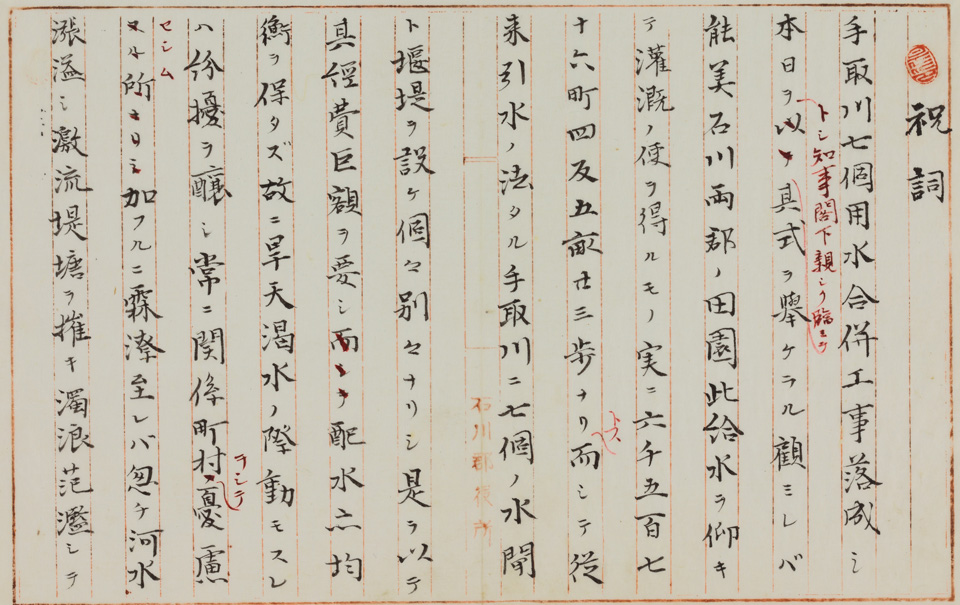 祝詞
手取川七個用水合併工事落成シ
トシ知事閣下親シク臨ミテ
本日ヲ以テ具式ヲ擧ケラル顧ミレバ
能美石川両郡ノ田園此給水ヲ仰キ
テ灌漑ノ便ヲ得ルモノ実ニ六千五百七
十六町四反五畝廿三歩ナリ而シテ従
トス
来引水ノ法タル手取川ニ七個ノ水閘
ト堰堤ヲ設ケ個々別々ナリシ是ヲ以テ
其経費巨額ヲ要シ而シテ配水亦均
衡ヲ保タズ故ニ旱天渇水ノ際動モスレ
ハ紛擾ヲ釀シ常ニ関係町村ノ憂慮
ヲシテ
スル所
セシム
加フルニ霖澪至レバ忽チ河水
漲溢シ激流堤塘ヲ摧キ濁浪范濫シテ
石川郡役所